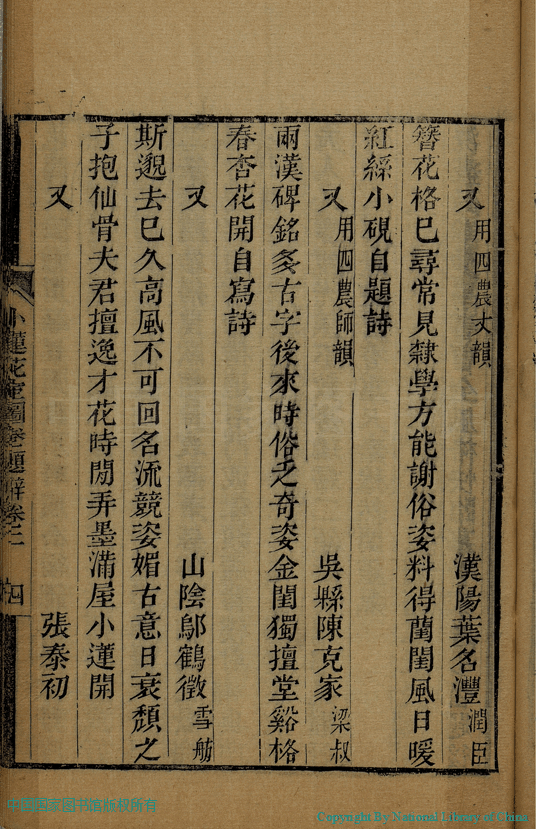 又 用四農丈韻 漢陽葉名灃 潤臣
簪花格巳尋常見隸學方能謝俗姿料得蘭閨風日暖
紅絲小硯自題詩
又 用四農師韻 吳縣陳克家 梁叔
兩漢碑銘多古字後來時俗乏奇姿金閨獨擅堂谿格
春杏花開自寫詩
又 山陰鄔鶴徵 雪舫
斯邈去巳久高風不可回名流競姿媚古意日衰頹之
子抱仙骨夫君擅逸才花時閒弄墨滿屋小蓮開
又 張泰初
小蓮花室圖卷題辭卷二 四
中国国家图书馆版权所有
Copyright By National Library of China